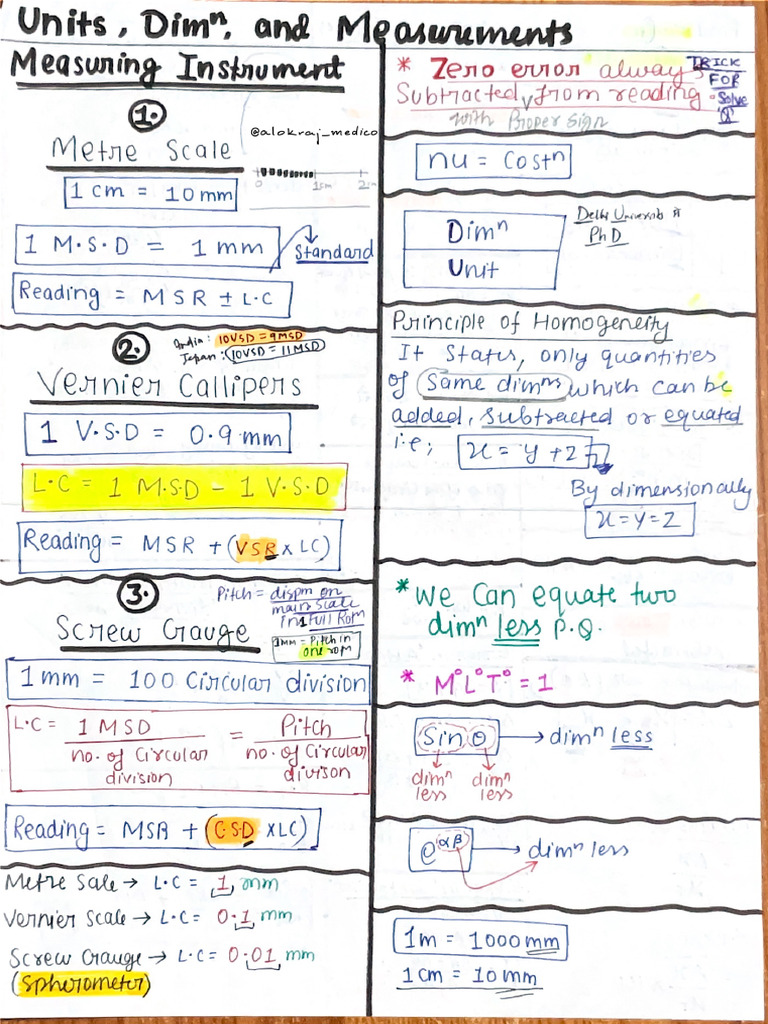 Units, Dimⁿ, and Measurements
Measuring Instrument
1.
@alokraj_medico
Metre Scale
0 1cm 2
1 cm = 10 mm
1 M.S.D = 1 mm
Standard
Reading = MSR ± L.C
2.
India: 10VSD = 9MSD
Japan: 10VSD = 11MSD
Vernier Callipers
1 V.S.D = 0.9 mm
L.C = 1 M.S.D - 1 V.S.D
Reading = MSR + (VSR x LC)
3.
Pitch = dispm on
main scale
in 1 full Rom
Screw Gauge
1mm = Pitch in
one rom
1mm = 100 Circular division
L.C = 1 MSD / no. of Circular division = Pitch / no. of Circular divison
Reading = MSR + (CSD x LC)
Metre Sale → L.C = 1 mm
Vernier Scale → L.C = 0.1 mm
Screw Gauge → L.C = 0.01 mm
(Spherometer)
* Zero error always
Subtracted from reading.
with Proper sign
TRICK
FOR
Solve
Q
nu = Costⁿ
Dimⁿ
Unit
Delhi
PhD
Principle of Homogeneity
It States, only quantities
of Same dimⁿs which can be
added, subtracted or equated
i.e; x = y + z
By dimensionally
x = y = z
* We Can equate two
dimⁿ less P.Q.
* M⁰L⁰T⁰ = 1
Sin θ → dimⁿ less
dimⁿ less dimⁿ less
e^αβ → dimⁿ less
1m = 1000 mm
1cm = 10 mm